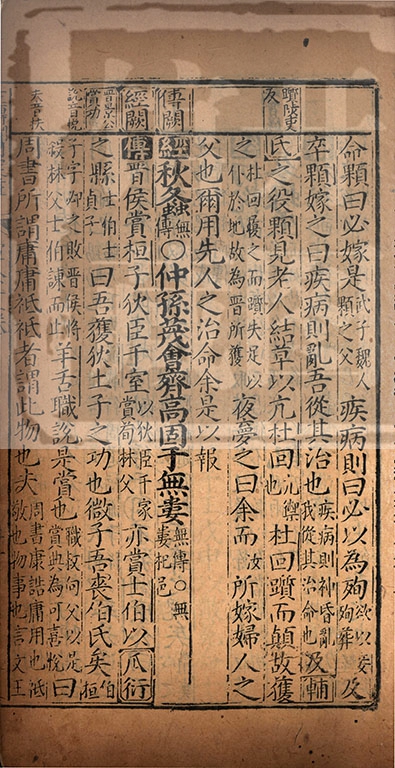 躓陟吏
反
傳闕
經闕
晉景公
賞功
說音悅
夫音扶
命顆曰必嫁是武子魏人顆之父疾病則曰必以為殉欲以妾殉葬及
卒顆嫁之曰疾病則亂吾從其治也疾病則神昏亂我從其治命也及輔
氏之役顆見老人結草以亢杜回亢禦也杜回躓而顛故獲
之杜回履之而躓失足以仆於地故為晉所獲夜夢之曰余而汝所嫁婦人之
父也爾用先人之治命余是以報
經秋螽無傳○仲孫蔑會齊高固于無婁無傳○無婁杞邑
傳晉侯賞桓子狄臣千室以狄臣千家賞荀林父亦賞士伯以瓜衍
之縣士伯士貞子曰吾獲狄土子之功也微子吾喪伯氏矣伯桓
子字邲之敗晉侯將殺林父士伯諫而止羊舌職說是賞也職叔向父以是賞典為可喜悅曰
周書所謂庸庸祗祗者謂此物也夫周書康誥庸用也祗敬也物事也言文王